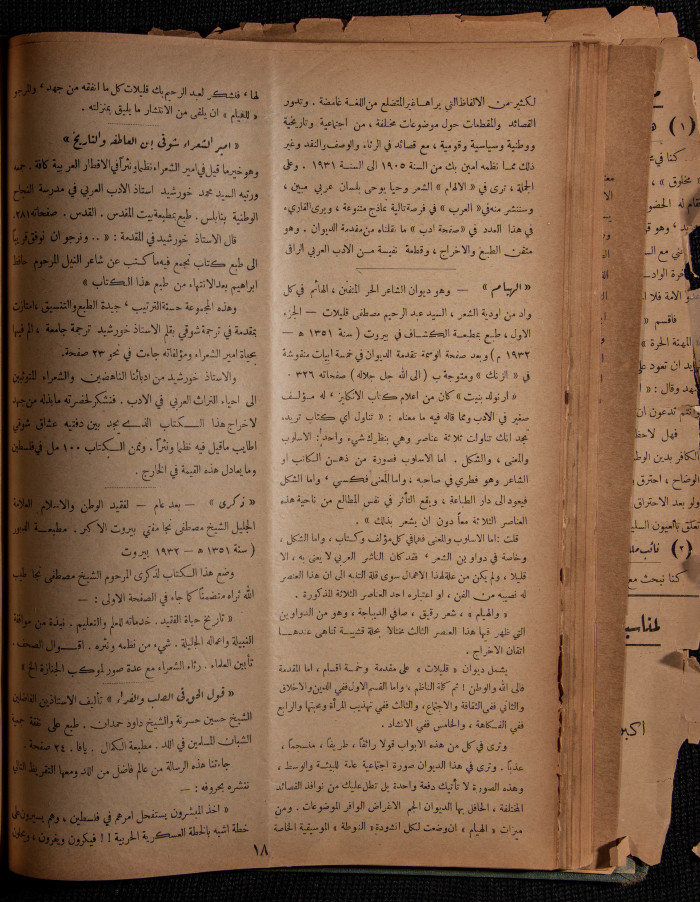 لكثير من الالفاظ التي يراها غير المتضلع من اللغة غامضة . وتدور
القصائد والمقطعات حول موضوعات مختلفة ، من اجتماعية وتاريخية
ووطنية وسياسية وقومية ، مع قصائد في الرثاء والوصف والنقد وغير
ذلك مما نظمه امين بك من السنة ١٩٠٥ الى السنة ١٩٣١ . وعلى
الجملة ، ترى في « الالهام » الشعر وحيا يوحى بلسان عربي مبين ،
وسننشر منه في « العرب » في فرصة تالية نماذج متنوعة ، ويرى القارىء
في هذا العدد في « صفحة ادب » ما نقلناه من مقدمة الديوان . وهو
متقن الطبع والاخراج ، وقطعة نفيسة من الادب العربي الراقي
« الهيام » — وهو ديوان الشاعر الحر المتفنن ، الهائم في كل
واد من اودية الشعر ، السيد عبد الرحيم مصطفى قليلات — الجزء
الاول ، طبع بمطبعة الكشاف في بيروت ( سنة ١٣٥١ هـ —
١٩٣٢ م ) وبعد صفحة الوسمة تقدمة الديوان في خمسة ابيات منقوشة
في « الزنك » ومتوجة ب ( الى الله جل جلاله ) صفحاته ٣٢٦ .
« ارنولد بنيت » كان من اعلام كتاب الانكليز ، له مؤلف
صغير في الادب ومما قاله فيه ما معناه : « تناول اي كتاب تريد ،
تجد انك تناولت ثلاثة عناصر وهي بنظرك شيء واحد : الاسلوب
والمعنى ، والشكل . اما الاسلوب فصورة من ذهن الكاتب او
الشاعر وهو فطري في صاحبه ، واما المعنى فكسبي ، واما الشكل
فيعود الى دار الطباعة ، ويقع التأثر في نفس المطالع من ناحية هذه
العناصر الثلاثة معاً دون ان يشعر بذلك » .
قلت : اما الاسلوب والمعنى فهما في كل مؤلف وكتاب ، واما الشكل ،
وخاصة في دواوين الشعر ، فقد كان الناشر العربي لا يعنى به ، الا
قليلا ، ولم يكن من علة لهذا الاهمال سوى قلة التنبه الى ان هذا العنصر
له نصيبه من الفن ، او اعتباره احد العناصر الثلاثة المذكورة .
« والهيام » ، شعر رقيق ، صافي الديباجة ، وهو من الدواوين
التي ظهر فيها هذا العنصر الثالث مختالا بحلة قشيبة تناهى عندها
اتقان الاخراج .
يشمل ديوان « قليلات » على مقدمة وخمسة اقسام ، اما المقدمة
فالى الله والوطن ! ثم كلمة الناظم ، واما القسم الاول ففي الدين والاخلاق
والثاني ففي الثقافة والاجتماع ، والثالث ففي تهذيب المرأة ومحبتها والرابع
ففي الفكاهة ، والخامس ففي الانشاد .
وترى في كل من هذه الابواب قولا رائقاً ، طريفاً ، منسجماً ،
عذباً . وترى في هذا الديوان صورة اجتماعية عامة للبيئة والوسط ،
وهذه الصورة لا تأتيك دفعة واحدة بل تطل عليك من نوافذ القصائد
المختلفة ، الحافل بها الديوان الجم الاغراض الوافر الموضوعات . ومن
ميزات « الهيام » ان وضعت لكل انشودة « النوطة » الموسيقية الخاصة
لها ، فلنشكر لعبد الرحيم بك قليلات كل ما انفقه من جهد ، والمرجو
« للهيام » ان يلقى من الانتشار ما يليق بمنزلته .
« امير الشعراء شوقي بين العاطفة والتاريخ »
وهو خير ما قيل في امير الشعراء نظما ونثراً في الاقطار العربية كافة . جمعه
ورتبه السيد محمد خورشيد استاذ الادب العربي في مدرسة النجاح
الوطنية بنابلس . طبع بمطبعة بيت المقدس . القدس . صفحاته ٢٨١
قال الاستاذ خورشيد في المقدمة : « .. ونرجو ان نوفق قريباً
الى طبع كتاب نجمع فيه ما كتب عن شاعر النيل المرحوم حافظ
ابراهيم بعد الانتهاء من طبع هذا الكتاب »
وهذه المجموعة حسنة الترتيب ، جيدة الطبع والتنسيق ، امتازت
بمقدمة في ترجمة شوقي بقلم الاستاذ خورشيد ترجمة جامعة ، الم فيها
بحياة امير الشعراء ومؤلفاته جاءت في نحو ٢٣ صفحة .
والاستاذ خورشيد من ادبائنا الناهضين والشعراء المتوثبين
الى احياء التراث العربي في الادب . فنشكر لحضرته ما بذله من جهد
لاخراج هذا الكتاب الذي يجد بين دفتيه عشاق شوقي
اطايب ما قيل فيه نظما ونثراً . وثمن الكتاب ١٠٠ مل في فلسطين
وما يعادل هذه القيمة في الخارج .
« ذكرى » — بعد عام — لفقيد الوطن والاسلام العلامة
الجليل الشيخ مصطفى نجا مفتي بيروت الاكبر . مطبعة
( سنة ١٣٥١ هـ — ١٩٣٢ بيروت
وضع هذا الكتاب لذكرى المرحوم الشيخ مصطفى نجا طيب
الله ثراه متضمناً كما جاء في الصفحة الاولى : —
« تاريخ حياة الفقيد . خدماته للعلم والتعليم . نبذة من مواقفه
النبيلة واعماله الجليلة . شيء من نظمه ونثره . اقوال الصحف .
تأبين العلماء . رثاء الشعراء مع عدة صور لموكب الجنازة الخ »
« قول الحق في الصلب والفداء » تأليف الاستاذين الفاضلين
الشيخ حسين حسونة والشيخ داود حمدان . طبع على نفقة جمعية
الشبان المسلمين في اللد . مطبعة الكمال . يافا . ٢٤ صفحة .
جاءتنا هذه الرسالة من عالم فاضل من اللد ومعها التقريظ التالي
ننشره بحروفه : —
« اخذ المبشرون يستفحل امرهم في فلسطين ، وهم يسيرون على
خطة اشبه بالخطة العسكرية الحربية !! فيكرون ويفرون ،
١٨
(١)
كنا في
« مخلوق » ،
(٢) نائب
كنا نبحث مع